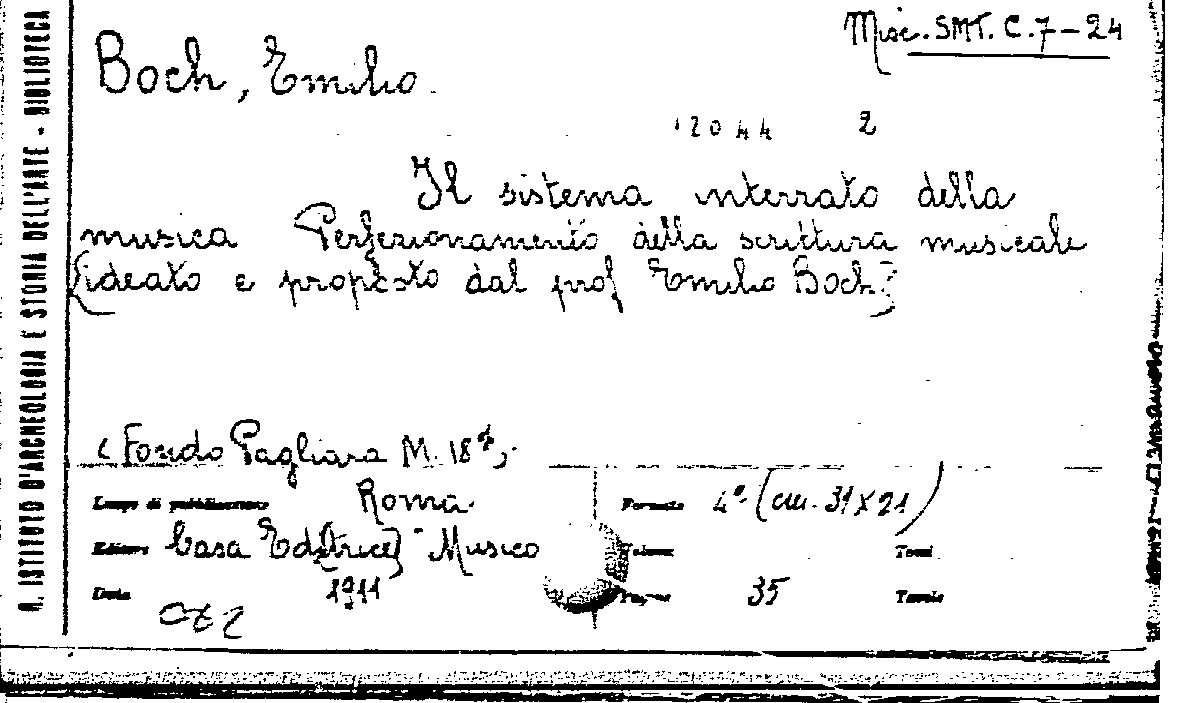 R. ISTITUTO D'ARCHEOLOGIA E STORIA DELL'ARTE - BIBLIOTECA
Misc. SMT. C. 7-24
Boch, Emilio.
12044 2
Il sistema interrato della
musica Perfezionamento della scrittura musicale
[ideato e proposto dal prof Emilio Boch]
(Fondo Pagliara M. 18
Luogo di pubblicazione Roma Formato 4° (cm. 31 x 21)
Editore Casa Ed[itrice] "Musica Volume Tomi
Data 1911 Pagine 35 Tavole